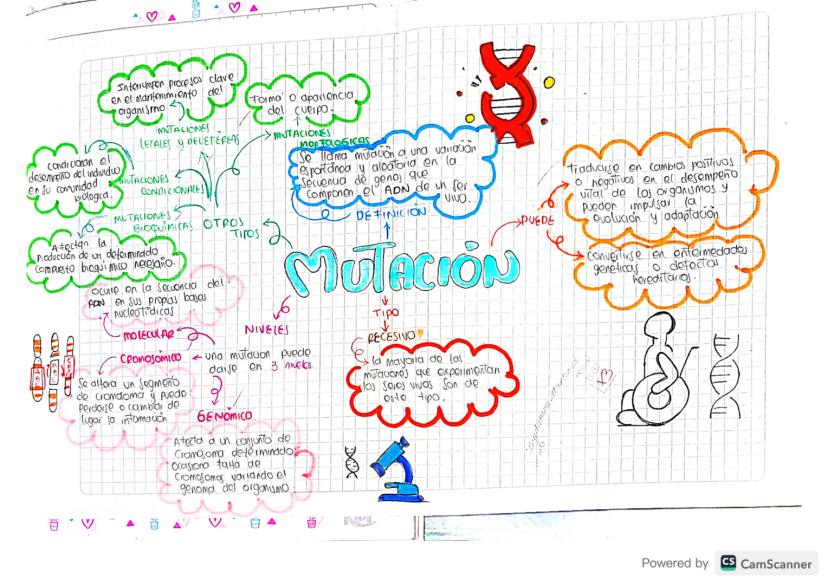 Interrumpen procesos clave
en el mantenimiento del
organismo
forma o apariencia
del cuerpo.
MUTACIONES
LETALES Y DELETÉREAS
MUTACIONES
MORFOLOGICAS
Condicionan el
desempeño del individuo
en su comunidad
biologica.
MUTACIONES
CONDICIONALES
MUTACIONES
BIOQUÍMICAS
OTROS
TIPOS
Afectan la
producción de un determinado
compuesto bioquímico necesario.
Se llama mutación a una variación
espontánea y aleatoria en la
secuencia de genes que
componen el ADN de un ser
vivo.
DEFINICIÓN
MUTACIÓN
PUEDE
traducirse en cambios positivos
o negativos en el desempeño
vital de los organismos y
pueden impulsar la
evolución y adaptación
convertirse en enfermedades
geneticas o defectos
hereditarios.
TIPO
RECESIVO
la mayoria de las
mutaciones que experimentan
los seres vivos son de
este tipo.
NIVELES
una mutacion puede
darse en 3 niveles
MOLECULAR
ocurre en la secuencia del
ADN en sus propias bases
nucleotídicas
CROMOSÓMICO
Se altera un segmento
de cromosoma y puede
perderse o cambiar de
lugar la información
GENÓMICO
Afecta a un conjunto de
cromosoma determinado
ocasiona falta de
cromosomas variando el
genoma del organismo
Powered by CS CamScanner